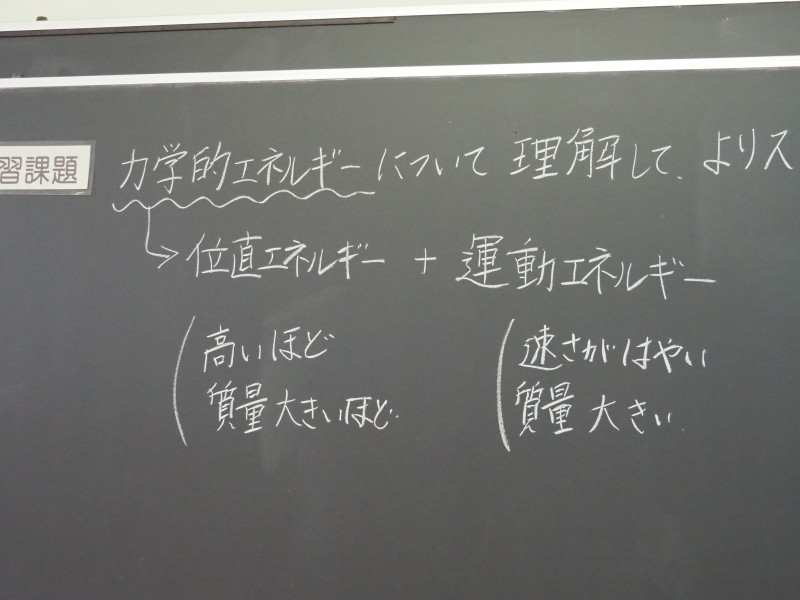 習課題
力学的エネルギーについて理解して、よりス
位置エネルギー + 運動エネルギー
高いほど
質量大きいほど
速さがはやい
質量 大きい